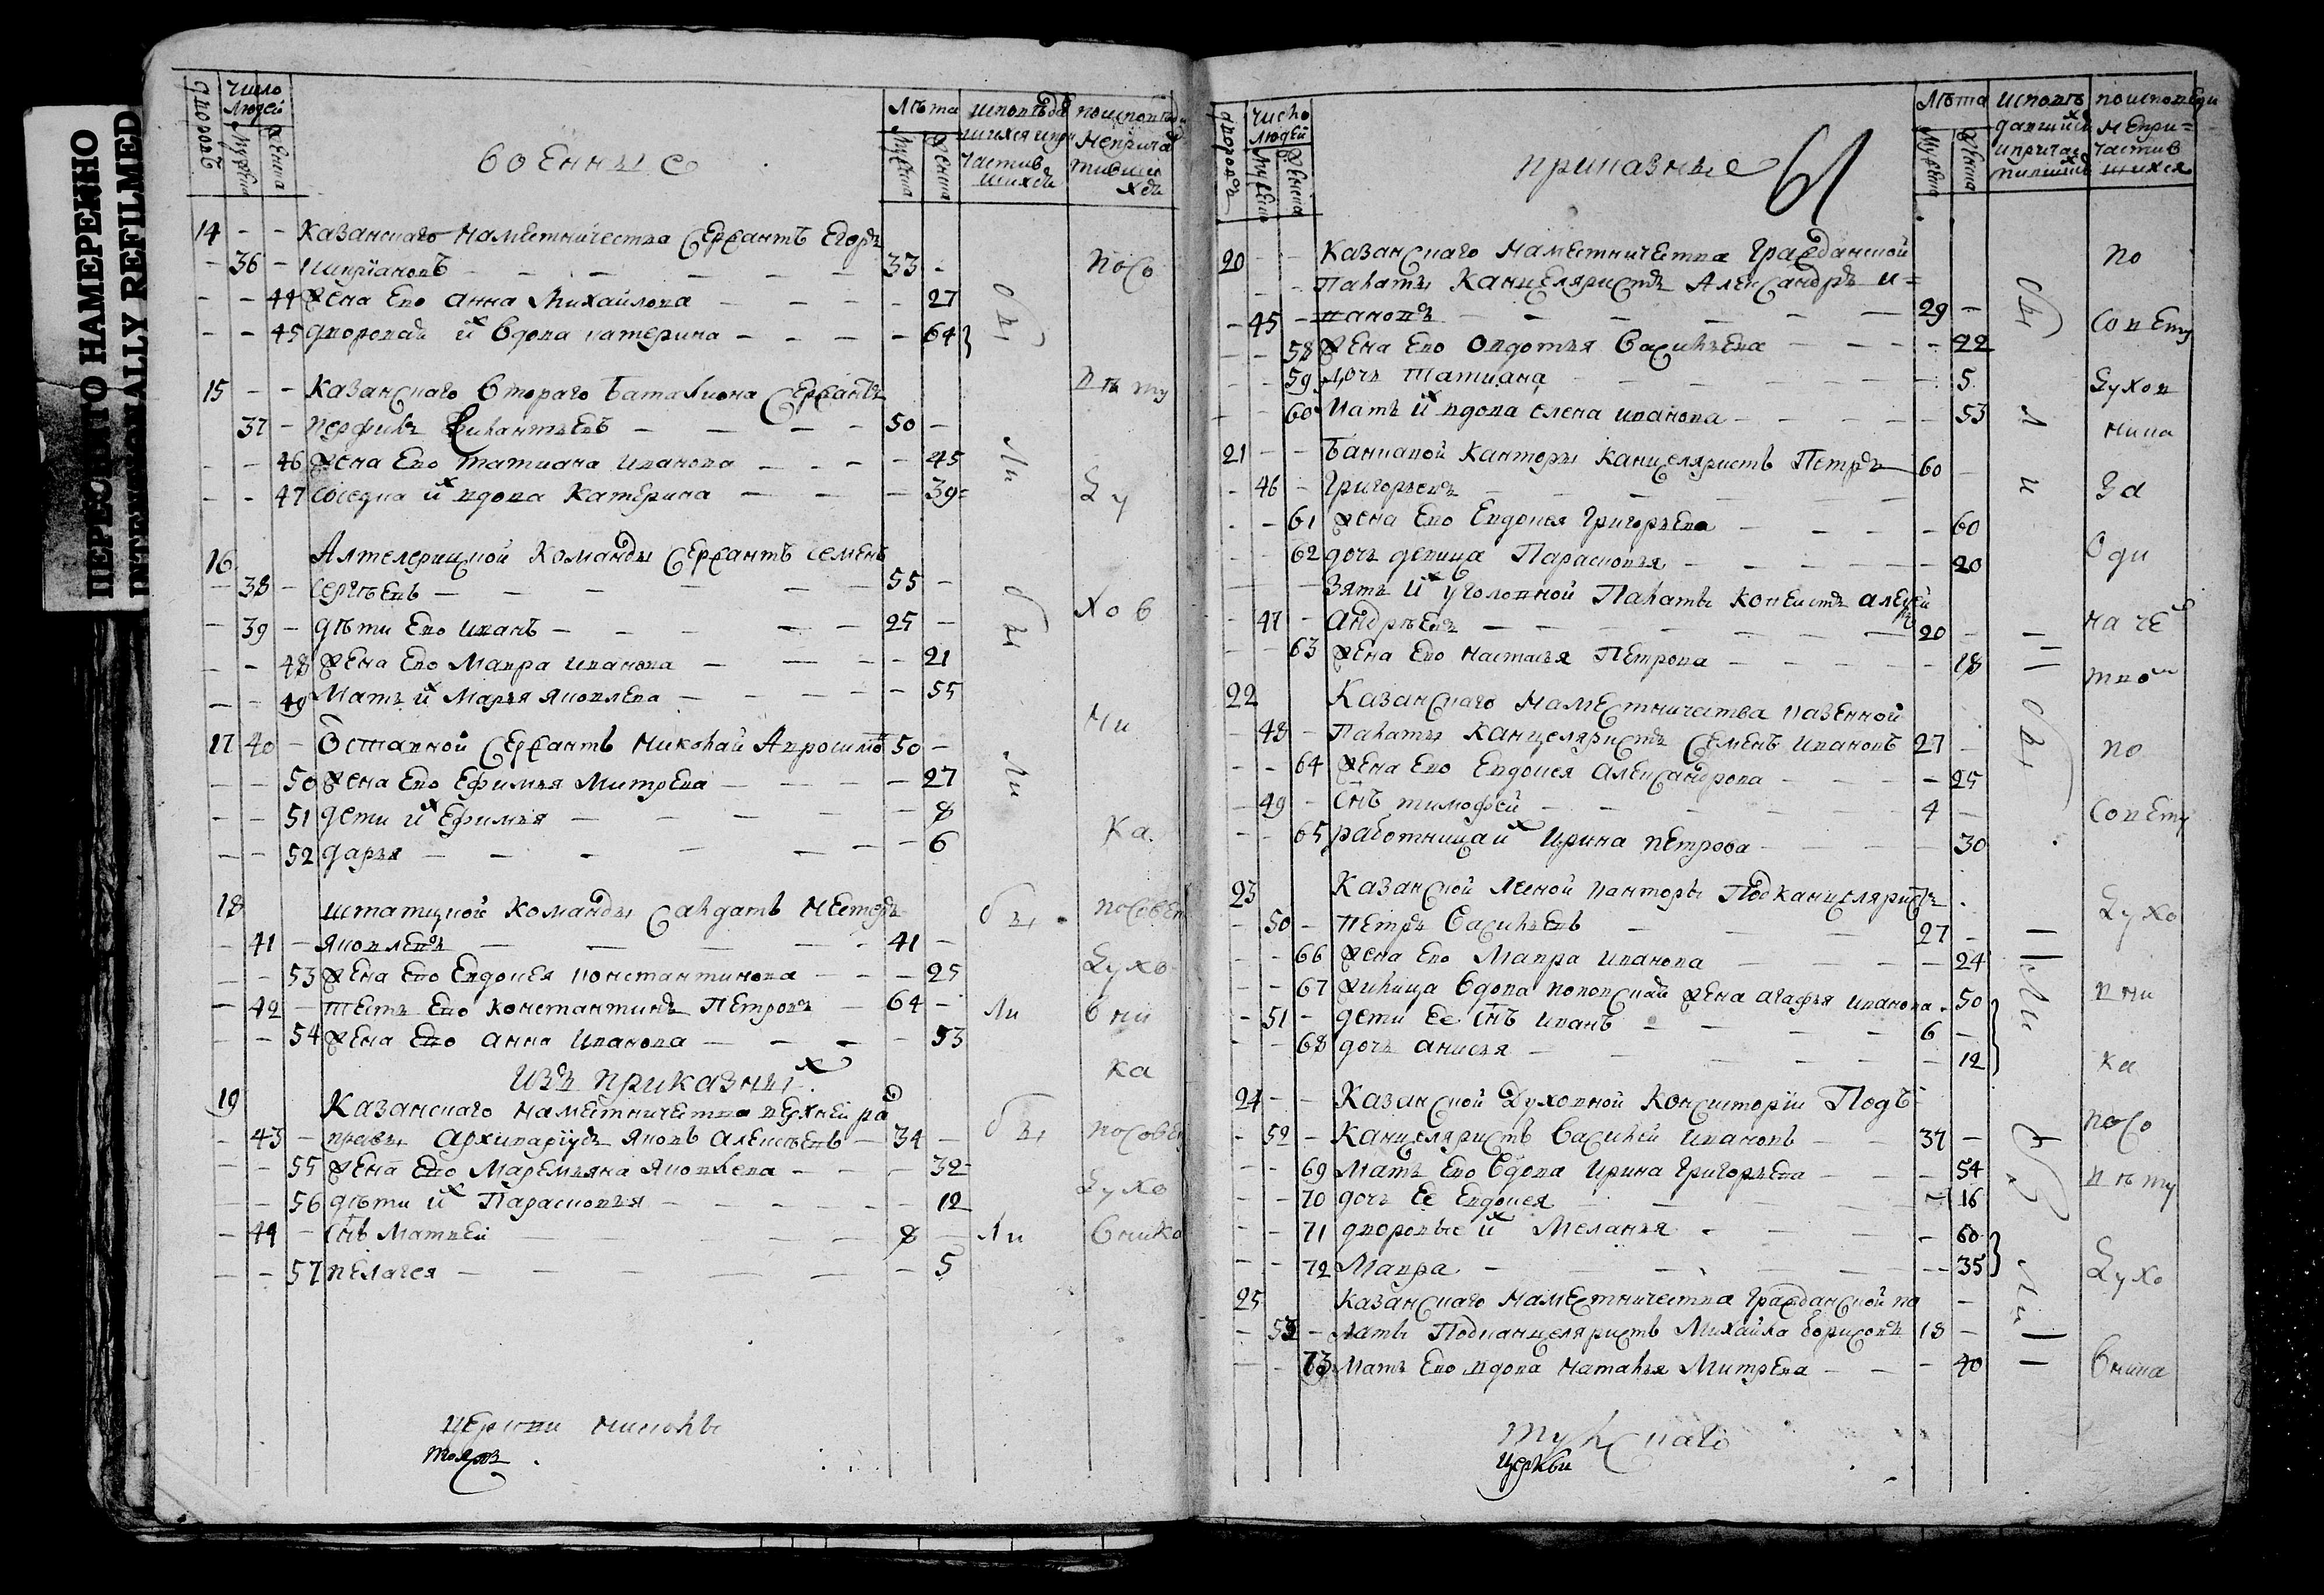 ПЕРЕСНЯТО НАМЕРЕННО
INTENTIONALLY REFILMED
дворовъ
число
людей
Мужеска
Женска
военные
лѣта
Мужеска
Женска
исповѣдав
шихся и при
частив
шихся
по исповеди
не прича
тивши
хся
14 - - Казанскаго наместничества сержантъ Егоръ
- 36 - киприановъ - - - 33 -
- - 44 жена ево анна Михайлова - - - 27
- - 45 дворовая их вдова катерина - - - 64
15 - - Казанскаго втораго баталиона сержантъ
37 - перфилъ - - - 50 -
- - 46 жена ево татиана иванова - - - 45
- - 47 соседка их вдова катерина - - - 39
16 Алтелерицкой команды сержантъ семенъ
- 38 - сергѣевъ - - - 55 -
- 39 - дѣти ево иванъ - - - 25 -
- - 48 жена ево Мавра иванова - - - 21
- - 49 Мать их Марья яковлева - - - 55
17 40 - Оставной сержантъ николай 50 -
- - 50 жена ево ефимья Митрева - - - 27
- - 51 дети их ефимья - - - 8
- - 52 дарья - - - 6
18 штатцкой команды салдатъ нестеръ
- 41 - яковлевъ - - - 41 -
- - 53 жена ево евдокея константинова - - - 25
- 42 - тесть ево константинъ петровъ - 64 -
- - 54 жена ево анна иванова - - - 53
изъ приказных
19 Казанскаго наместничества верхней рас
- 43 - правы архивариусъ яковъ алексѣевъ - 34 -
- - 55 жена ево Маремьяна яковлева - - - 32
- - 56 дѣти их Парасковья - - - 12
- 44 - снъ Матвеи - - - 8 -
- - 57 пелагея - - - 5
бы
ли
бы
ли
бы
ли
бы
ли
посо
вѣту
ду
хов
ни
ка
посовет
духо
вни
ка
посовет
духо
внико
церкви николы
тоя ж
дворовъ
число
людей
Мужеска
Женска
приказные
61
лѣта
Мужеска
Женска
исповѣ
давшихся
и причас
тившихся
по исповеди
не при=
частив
шихся
20 - - Казанскаго наместничества гражданской
- - Палаты канцеляристъ Александръ и=
- 45 - вановъ - - - 29 -
- - 58 жена ево овдотья васильева - - - 22
- - 59 дочь татиана - - - 5
- - 60 Мать их вдова елена иванова - - - 53
21 - - банковой канторы канцеляристъ Петръ 60 -
- 46 - григорьевъ - - -
- - 61 жена ево евдокея григорьева - - - 60
- - 62 дочь девица Парасковья - - - 20
- - зять их уголовной Палаты копеистъ алексей
- 47 - андрѣевъ - - - 20 -
- - 63 жена ево настасья петрова - - - 18
22 Казанскаго наместничества казенной
- 48 - Палаты канцеляристъ семенъ ивановъ 27 -
- - 64 жена ево евдокея александрова - - - 25
- 49 - снъ тимофей - - - 4 -
- - 65 работница их ирина петрова - - - 30
23 Казанской лесной канторы Подканцеляристъ
- 50 - петръ васильевъ - - - 27 -
- - 66 жена ево Мавра иванова - - - 24
- - 67 жилица вдова поповская жена агафья иванова - 50
- 51 - дети ее снъ иванъ - - - 6 -
- - 68 дочь анисья - - - 12
24 - - Казанской духовной консистории Подъ
- 52 - канцеляристъ василей ивановъ - - 37 -
- - 69 Мать ево вдова ирина григорьева - - - 54
- - 70 дочь ее евдокея - - - 16
- - 71 дворовые их Меланья - - - 60
- - 72 Мавра - - - 35
25 Казанскаго наместничества гражданской па -
- 53 - латы Подканцеляристъ Михайла борисовъ 18 -
- - 73 Мать ево вдова наталья Митрева - - - 40
бы
л
и
бы
ли
бы
ли
по
совету
духов
ника
за
оди
наче
ство
по
совету
духо
вни
ка
посо
вѣту
духо
вника
тулскаго
церкви